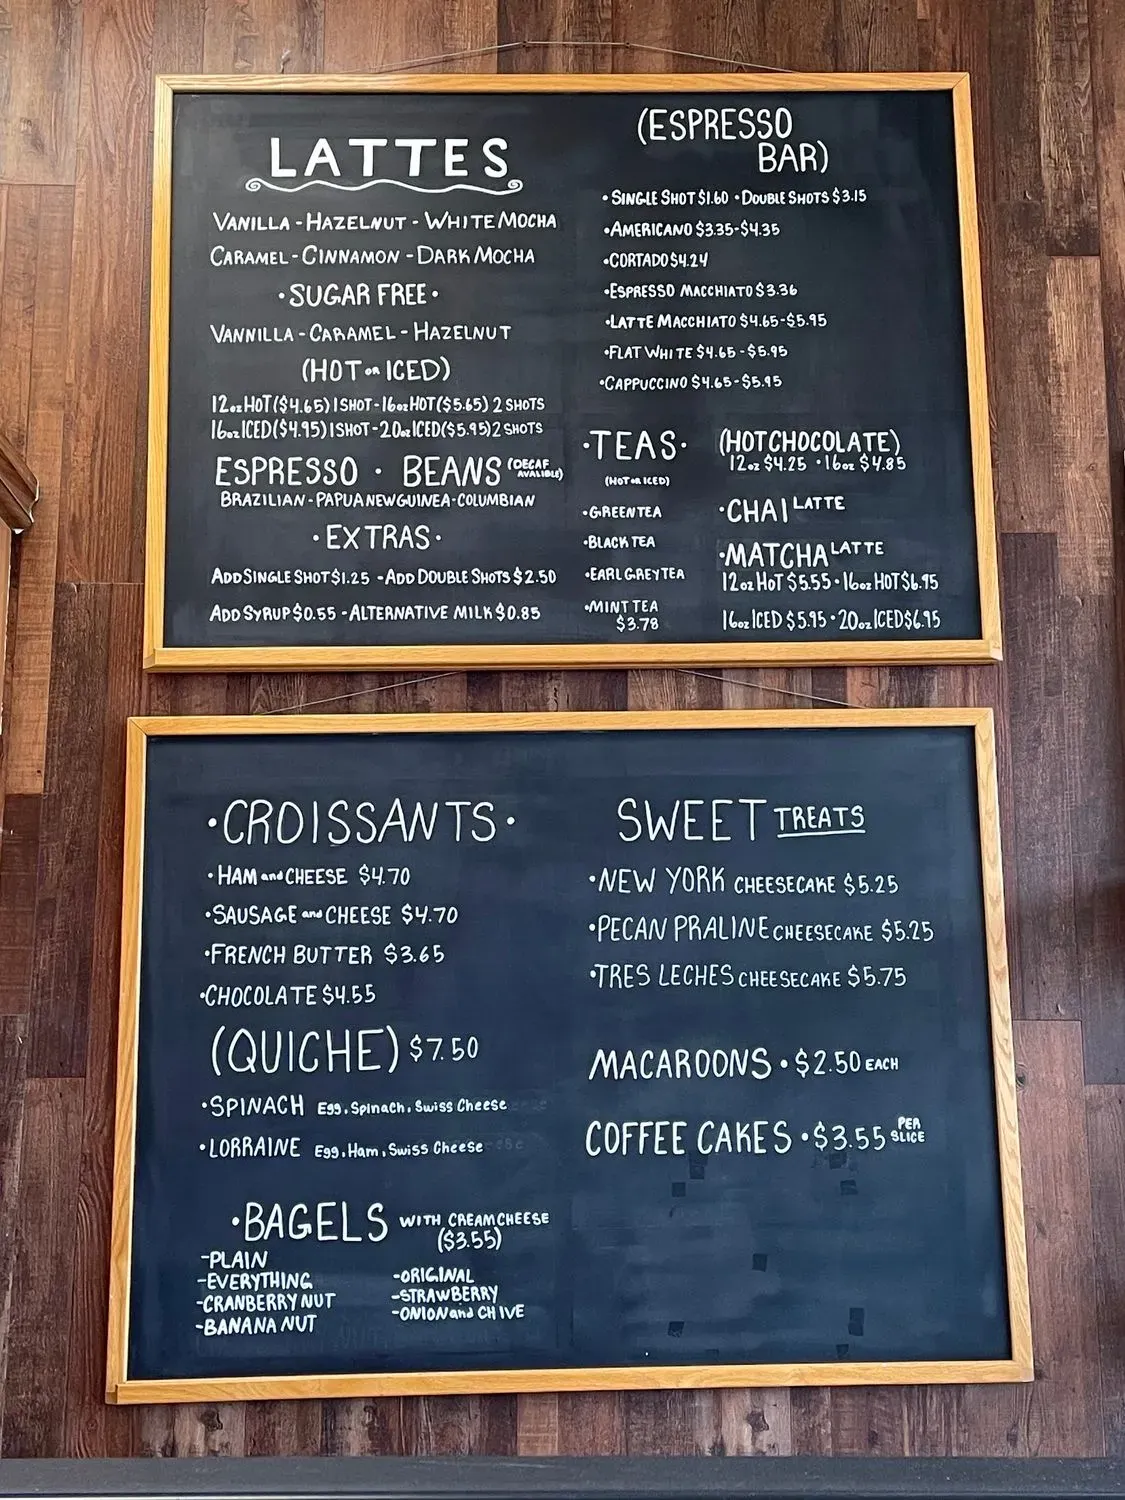 LATTES
VANILLA - HAZELNUT - WHITE MOCHA
CARAMEL - CINNAMON - DARK MOCHA
• SUGAR FREE •
VANNILLA - CARAMEL - HAZELNUT
(HOT or ICED)
12oz HOT ($4.65) 1 SHOT - 16oz HOT ($5.65) 2 SHOTS
16oz ICED ($4.95) 1 SHOT - 20oz ICED ($5.95) 2 SHOTS
ESPRESSO • BEANS (DECAF AVALIBLE)
BRAZILIAN - PAPUA NEW GUINEA - COLUMBIAN
• EXTRAS •
ADD SINGLE SHOT $1.25 - ADD DOUBLE SHOTS $2.50
ADD SYRUP $0.55 - ALTERNATIVE MILK $0.85
(ESPRESSO
BAR)
• SINGLE SHOT $1.60 • DOUBLE SHOTS $3.15
• AMERICANO $3.35-$4.35
• CORTADO $4.24
• ESPRESSO MACCHIATO $3.36
• LATTE MACCHIATO $4.65-$5.95
• FLAT WHITE $4.65-$5.95
• CAPPUCCINO $4.65-$5.95
• TEAS •
(HOT or ICED)
• GREEN TEA
• BLACK TEA
• EARL GREY TEA
• MINT TEA
$3.78
(HOT CHOCOLATE)
12oz $4.25 • 16oz $4.85
• CHAI LATTE
• MATCHA LATTE
12oz HOT $5.55 • 16oz HOT $6.95
16oz ICED $5.95 • 20oz ICED $6.95
• CROISSANTS •
• HAM and CHEESE $4.70
• SAUSAGE and CHEESE $4.70
• FRENCH BUTTER $3.65
• CHOCOLATE $4.55
(QUICHE) $7.50
• SPINACH Egg, Spinach, Swiss Cheese
• LORRAINE Egg, Ham, Swiss Cheese
• BAGELS WITH CREAM CHEESE
($3.55)
- PLAIN
- EVERYTHING
- CRANBERRY NUT
- BANANA NUT
- ORIGINAL
- STRAWBERRY
- ONION and CHIVE
SWEET TREATS
• NEW YORK CHEESECAKE $5.25
• PECAN PRALINE CHEESECAKE $5.25
• TRES LECHES CHEESECAKE $5.75
MACAROONS • $2.50 EACH
COFFEE CAKES • $3.55 PER SLICE